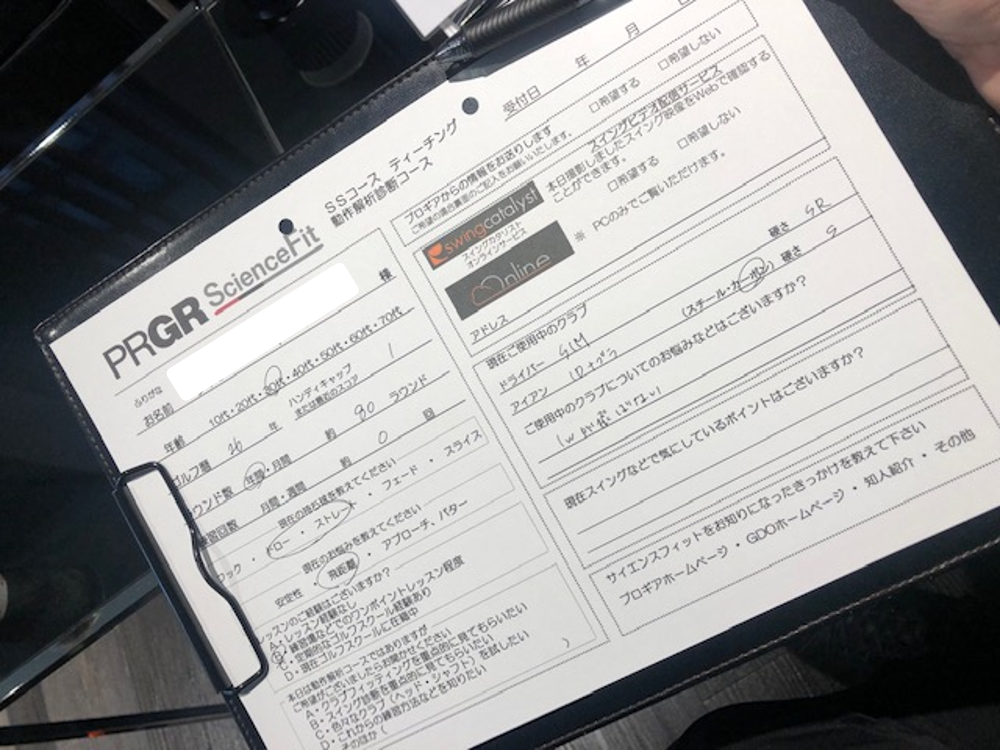 PRGR ScienceFit
SSコース ティーチング
動作解析診断コース
ふりがな
お名前 様
年齢 10代・20代・30代・40代・50代・60代・70代
ゴルフ歴 26 年 ハンディキャップ または最近のスコア 1
ウンド数 年間・月間 約 80 ラウンド
練習回数 月間・週間 約 0 回
現在の持ち球を教えてください
フック ・ ドロー ・ ストレート ・ フェード ・ スライス
現在のお悩みを教えてください
安定性 ・ 飛距離 ・ アプローチ、パター
レッスンのご経験はございますか?
A・レッスン経験なし
B・練習場などでのワンポイントレッスン程度
C・定期的なゴルフスクール経験あり
D・現在ゴルフスクールに在籍中
本日は動作解析コースではありますが
ご希望がございましたらお聞かせください
A・クラブフィッティングを重点的に見てもらいたい
B・スイング診断を重点的に見てもらいたい
C・色々なクラブ(ヘッド・シャフト)を試したい
D・これからの練習方法などを知りたい
そのほか( )
受付日 年 月
プロギアからの情報をお送りします □希望する □希望しない
ご希望の場合裏面のご記入をお願いいたします。
スイングビデオ配信サービス
swingcatalyst
スイングカタリスト
オンラインサービス
本日撮影しましたスイング映像をWebで確認する
ことができます。 □希望する □希望しない
Online
※ PCのみでご覧いただけます。
アドレス
現在ご使用中のクラブ
ドライバー SIM 硬さ SR
アイアン (スチール・カーボン) 硬さ S
ご使用中のクラブについてのお悩みなどはございますか?
現在スイングなどで気にしているポイントはございますか?
サイエンスフィットをお知りになったきっかけを教えて下さい
プロギアホームページ ・ GDOホームページ ・ 知人紹介 ・ その他